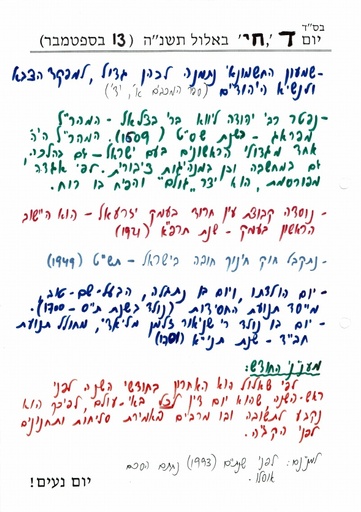 בס"ד
יום ד', ח"י באלול תשנ"ה (13 בספטמבר)
-שמעון החשמונאי נתמנה לכהן גדול, למפקד הצבא
ולנשיא היהודים (ספר המכבים א', יד')
-נפטר רבי יהודה ליווא ברי בצלאל - המהר"ל
מפראג - בשנת שס"ט (1609). המהר"ל היה
אחד מגדולי הראשונים בעם ישראל - גם בהלכה,
גם במחשבה וגם במנהיגות ציבורית. לפי אגדה
מפורסמת, הוא יצר "גולם" והפיח בו רוח.
-נוסדה קבוצת עין חרוד בעמק יזרעאל - הוא הישוב
הראשון בעמק - שנת תרפ"א (1921)
-נתקבל חוק חינוך חובה בישראל - תש"ט (1949)
-יום הולדתו, ויום בו נתגלה, הבעל-שם-טוב,
מייסד תנועת החסידות (נולד בשנת ת"ס - 1700).
-יום בו נולד ר' שניאור זלמן מליאדי, מחולל תנועת
חב"ד - שנת
מענייני החודש:
לפי שאלול הוא האחרון בחודשי השנה לפני
ראש-השנה שהוא יום דין לכל באי-עולם, לפיכך הוא
נקבע לתשובה ובו מרבים באמירת סליחות ותחנונים
לפני הקב"ה.
לפני שנתיים (1993) נחתם הסכם
אוסלו.
יום נעים!